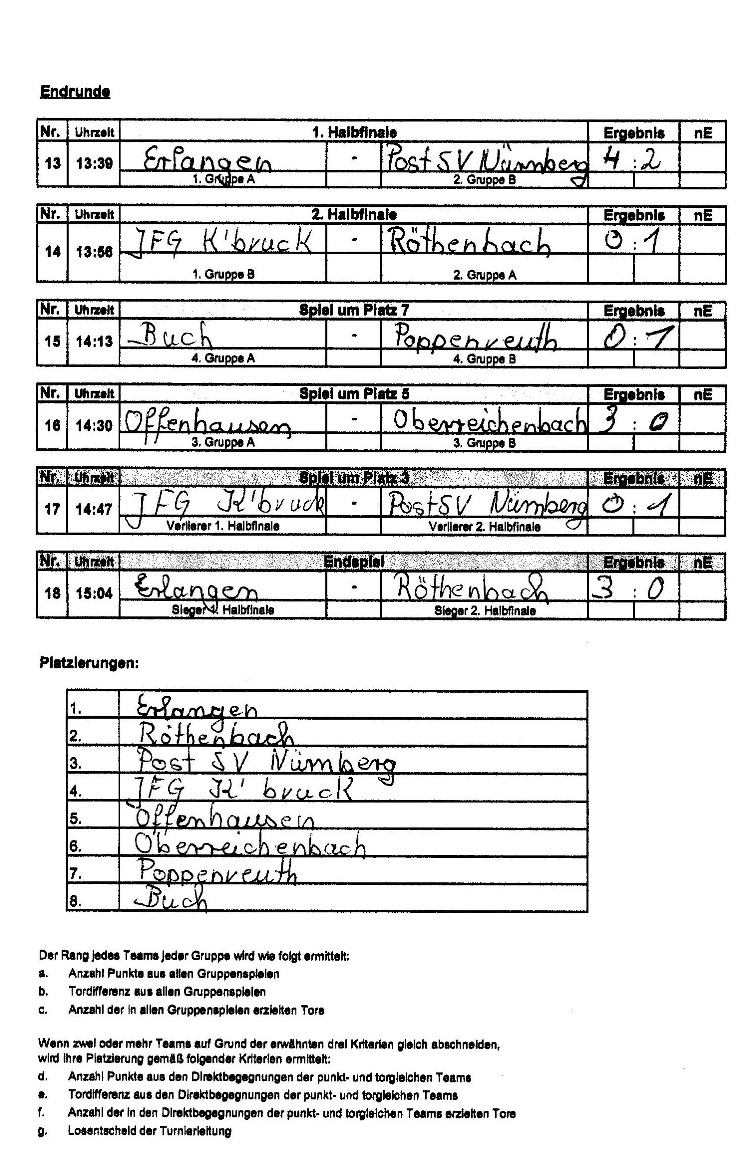 Endrunde
Nr. Uhrzeit 1. Halbfinale Ergebnis nE
13 13:39 Erlangen - Post SV Nürnberg 4 : 2
1. Gruppe A 2. Gruppe B
Nr. Uhrzeit 2. Halbfinale Ergebnis nE
14 13:56 JFG K'bruck - Röthenbach 0 : 1
1. Gruppe B 2. Gruppe A
Nr. Uhrzeit Spiel um Platz 7 Ergebnis nE
15 14:13 Buch - Poppenreuth 0 : 1
4. Gruppe A 4. Gruppe B
Nr. Uhrzeit Spiel um Platz 5 Ergebnis nE
16 14:30 Offenhausen - Oberreichenbach 3 : 0
3. Gruppe A 3. Gruppe B
Nr. Uhrzeit Spiel um Platz 3 Ergebnis nE
17 14:47 JFG K'bruck - Post SV Nürnberg 0 : 1
Verlierer 1. Halbfinale Verlierer 2. Halbfinale
Nr. Uhrzeit Endspiel Ergebnis nE
18 15:04 Erlangen - Röthenbach 3 : 0
Sieger 1. Halbfinale Sieger 2. Halbfinale
Platzierungen:
1. Erlangen
2. Röthenbach
3. Post SV Nürnberg
4. JFG K'bruck
5. Offenhausen
6. Oberreichenbach
7. Poppenreuth
8. Buch
Der Rang jedes Teams jeder Gruppe wird wie folgt ermittelt:
a. Anzahl Punkte aus allen Gruppenspielen
b. Tordifferenz aus allen Gruppenspielen
c. Anzahl der in allen Gruppenspielen erzielten Tore
Wenn zwei oder mehr Teams auf Grund der erwähnten drei Kriterien gleich abschneiden,
wird ihre Platzierung gemäß folgender Kriterien ermittelt:
d. Anzahl Punkte aus den Direktbegegnungen der punkt- und torgleichen Teams
e. Tordifferenz aus den Direktbegegnungen der punkt- und torgleichen Teams
f. Anzahl der in den Direktbegegnungen der punkt- und torgleichen Teams erzielten Tore
g. Losentscheid der Turnierleitung